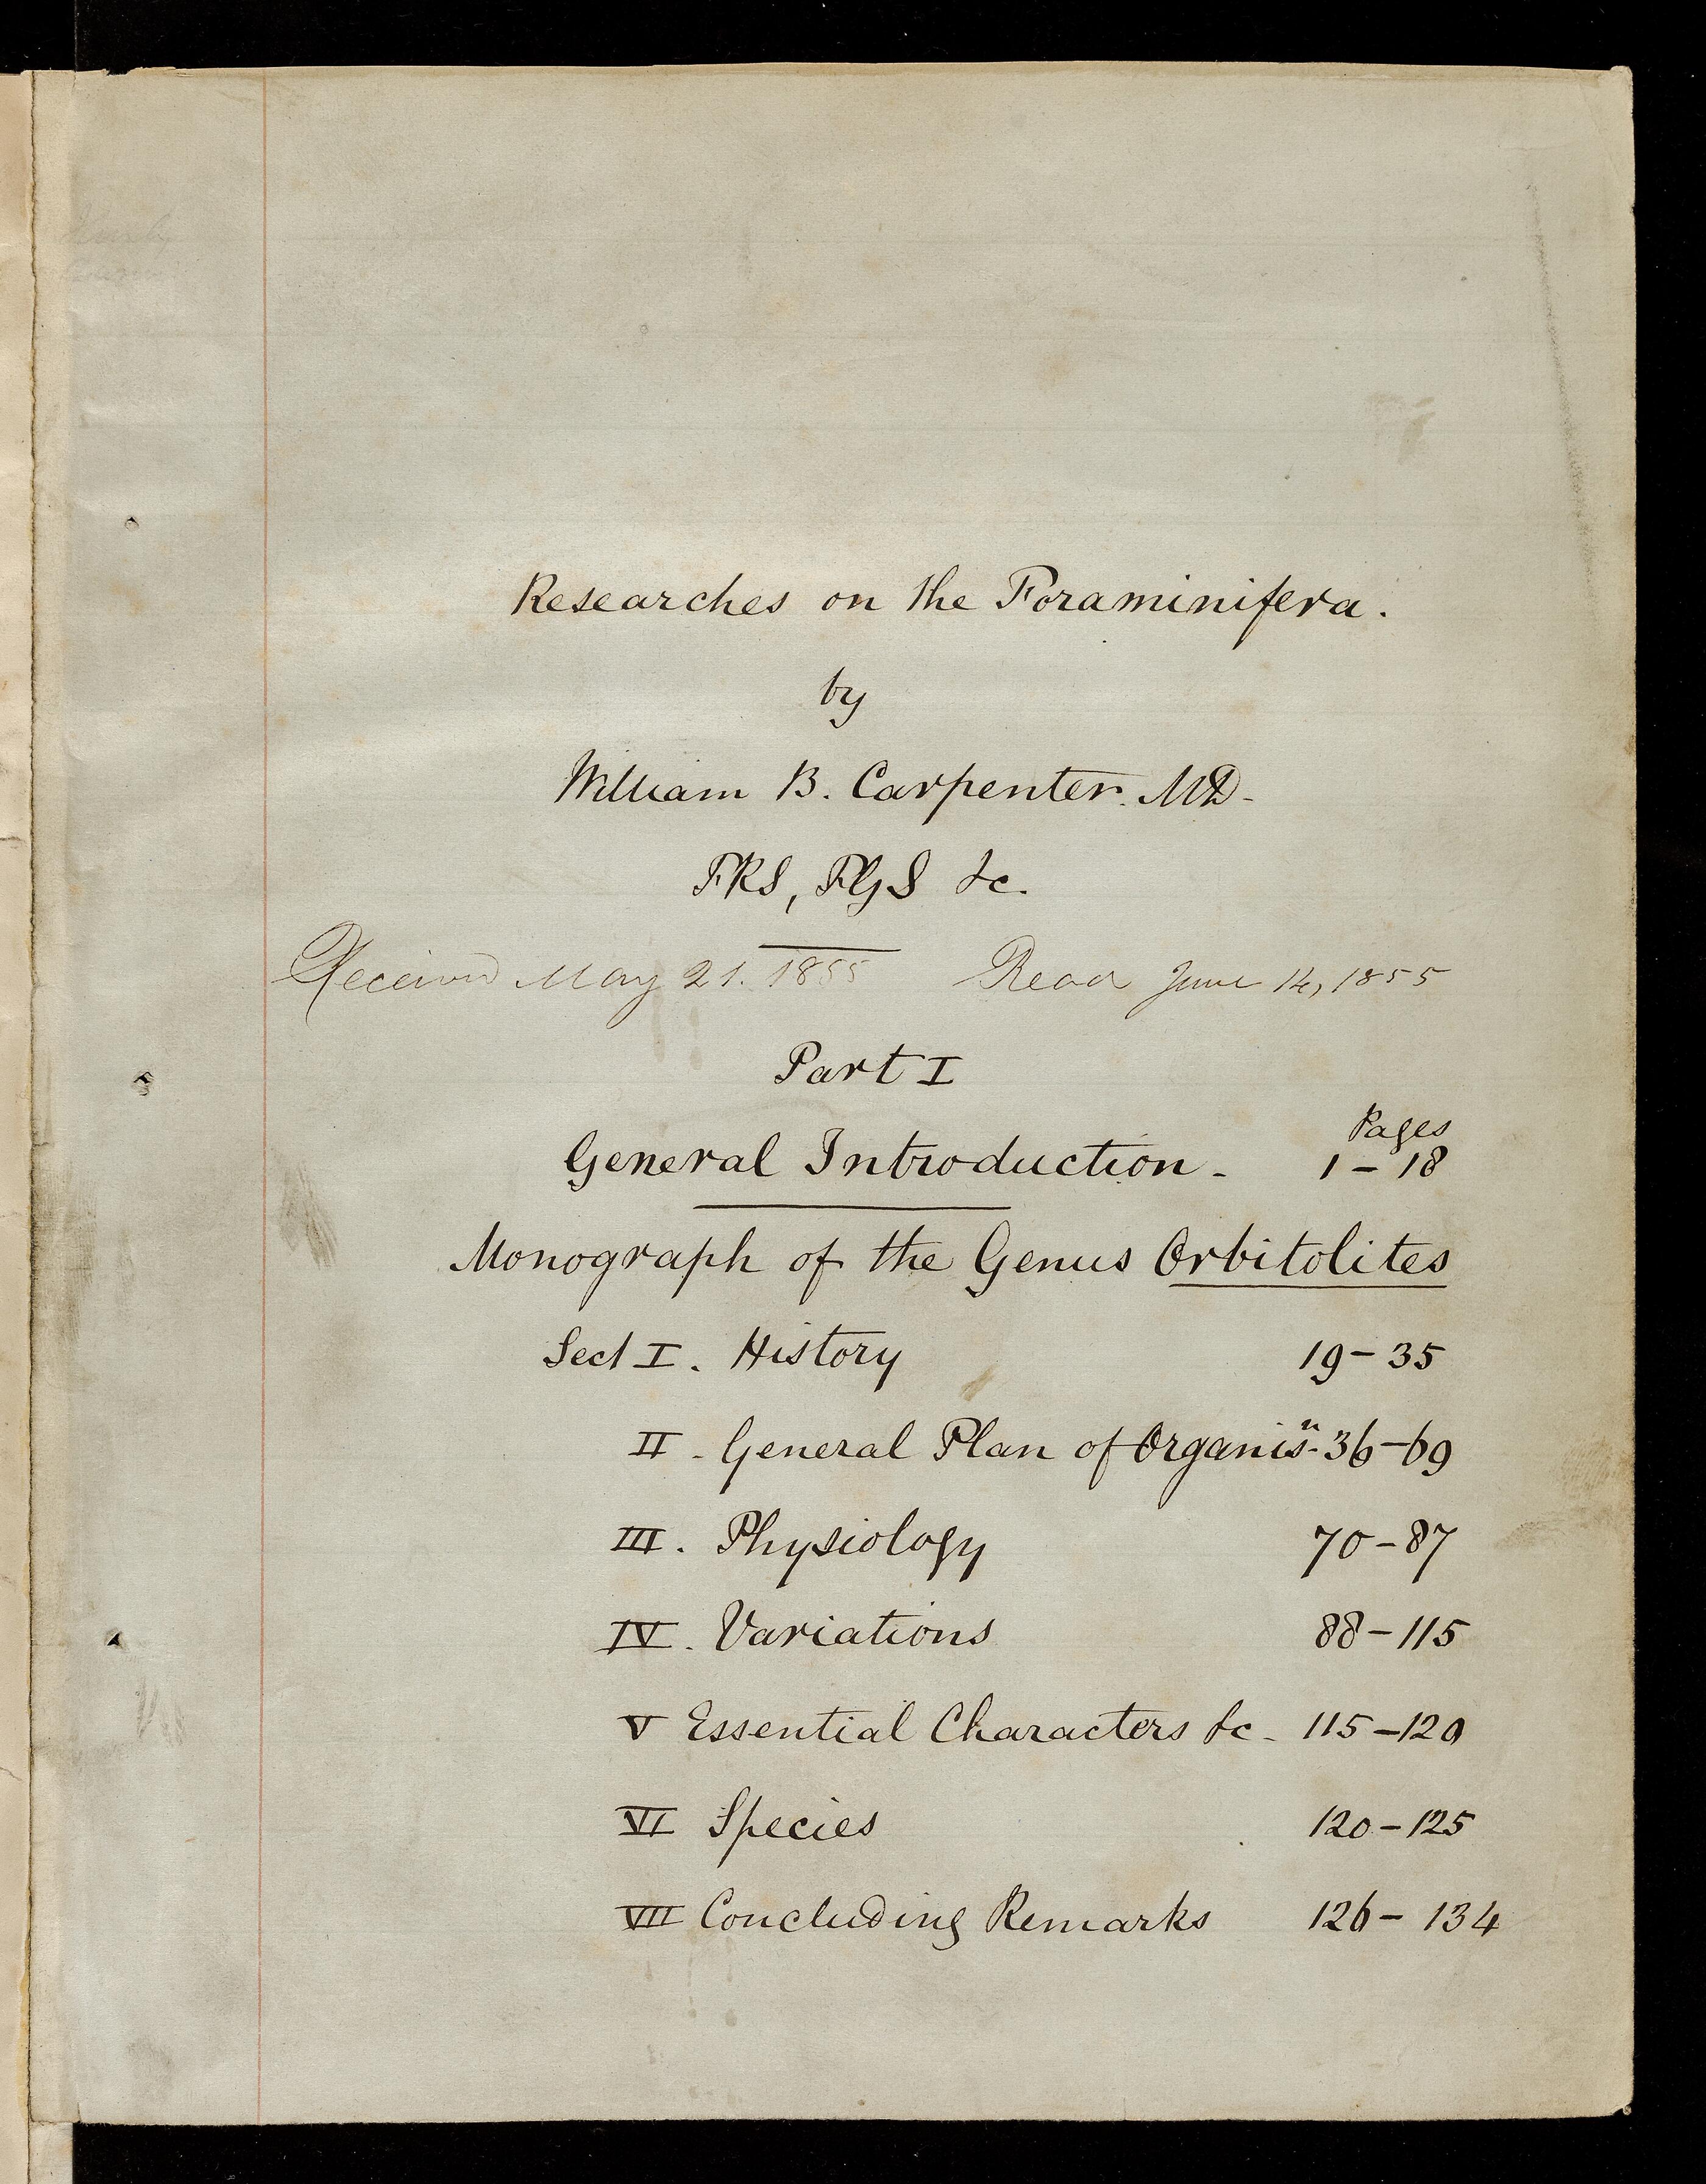 Researches on the Foraminifera.
by
William B. Carpenter. MD-
FRS, FGS &c.
Received May 21. 1855 Read June 14, 1855
Part I
Pages
General Introduction - 1 - 18
Monograph of the Genus Orbitolites
Sect I. History 19 - 35
II - General Plan of Organisⁿ- 36-69
III. Physiology 70 - 87
IV. Variations 88 - 115
V Essential Characters &c - 115 - 120
VI Species 120 - 125
VII Concluding Remarks 126 - 134